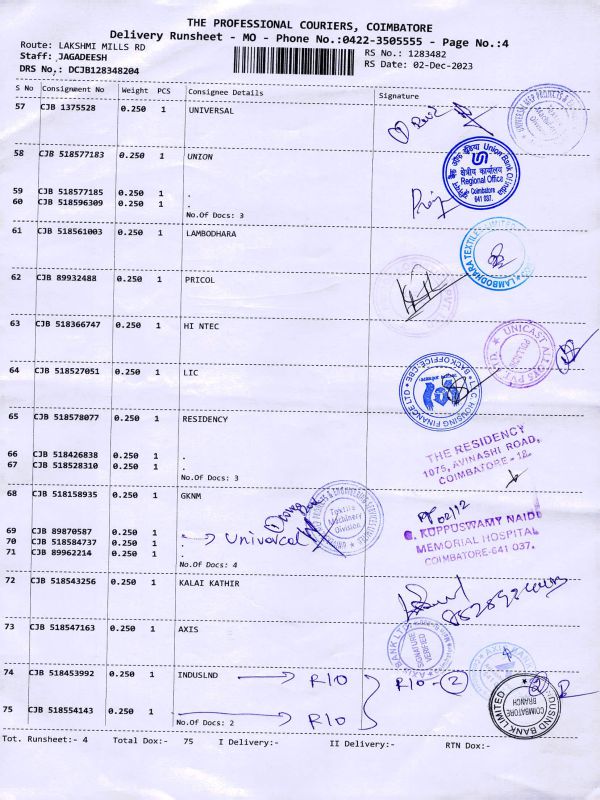 THE PROFESSIONAL COURIERS, COIMBATORE
Delivery Runsheet - MO - Phone No.:0422-3505555 - Page No.:4
Route: LAKSHMI MILLS RD
RS No.: 1283482
Staff: JAGADEESH
RS Date: 02-Dec-2023
DRS No,: DCJB128348204
S No Consignment No Weight PCS Consignee Details Signature
57 CJB 1375528 0.250 1 UNIVERSAL
58 CJB 518577183 0.250 1 UNION
यूनियन बैंक ऑफ इंडिया Union Bank Of India
क्षेत्रीय कार्यालय
Regional Office
Coimbatore
641 037.
59 CJB 518577185 0.250 1 .
60 CJB 518596309 0.250 1 .
No.Of Docs: 3
61 CJB 518561003 0.250 1 LAMBODHARA
LAMBODHARA TEXTILES LIMITED
62 CJB 89932488 0.250 1 PRICOL
63 CJB 518366747 0.250 1 HI NTEC
UNICAST
64 CJB 518527051 0.250 1 LIC
LIC HOUSING FINANCE LTD
BACKOFFICE-CBE
65 CJB 518578077 0.250 1 RESIDENCY
THE RESIDENCY
1075, AVINASHI ROAD,
COIMBATORE - 18.
66 CJB 518426838 0.250 1 .
67 CJB 518528310 0.250 1 .
No.Of Docs: 3
68 CJB 518158935 0.250 1 GKNM
Textile
Machinery
Division
02/12
G. KUPPUSWAMY NAIDU
MEMORIAL HOSPITAL
COIMBATORE-641 037.
69 CJB 89870587 0.250 1 .
70 CJB 518584737 0.250 1 . Universal
71 CJB 89962214 0.250 1 .
No.Of Docs: 4
72 CJB 518543256 0.250 1 KALAI KATHIR
73 CJB 518547163 0.250 1 AXIS
AXIS BANK LTD
SIGNATURE
VERIFIED
74 CJB 518453992 0.250 1 INDUSLND R/O R/O - 2
INDUSIND BANK LIMITED
COIMBATORE
BRANCH
75 CJB 518554143 0.250 1 . R/O
No.Of Docs: 2
Tot. Runsheet:- 4 Total Dox:- 75 I Delivery:- II Delivery:- RTN Dox:-